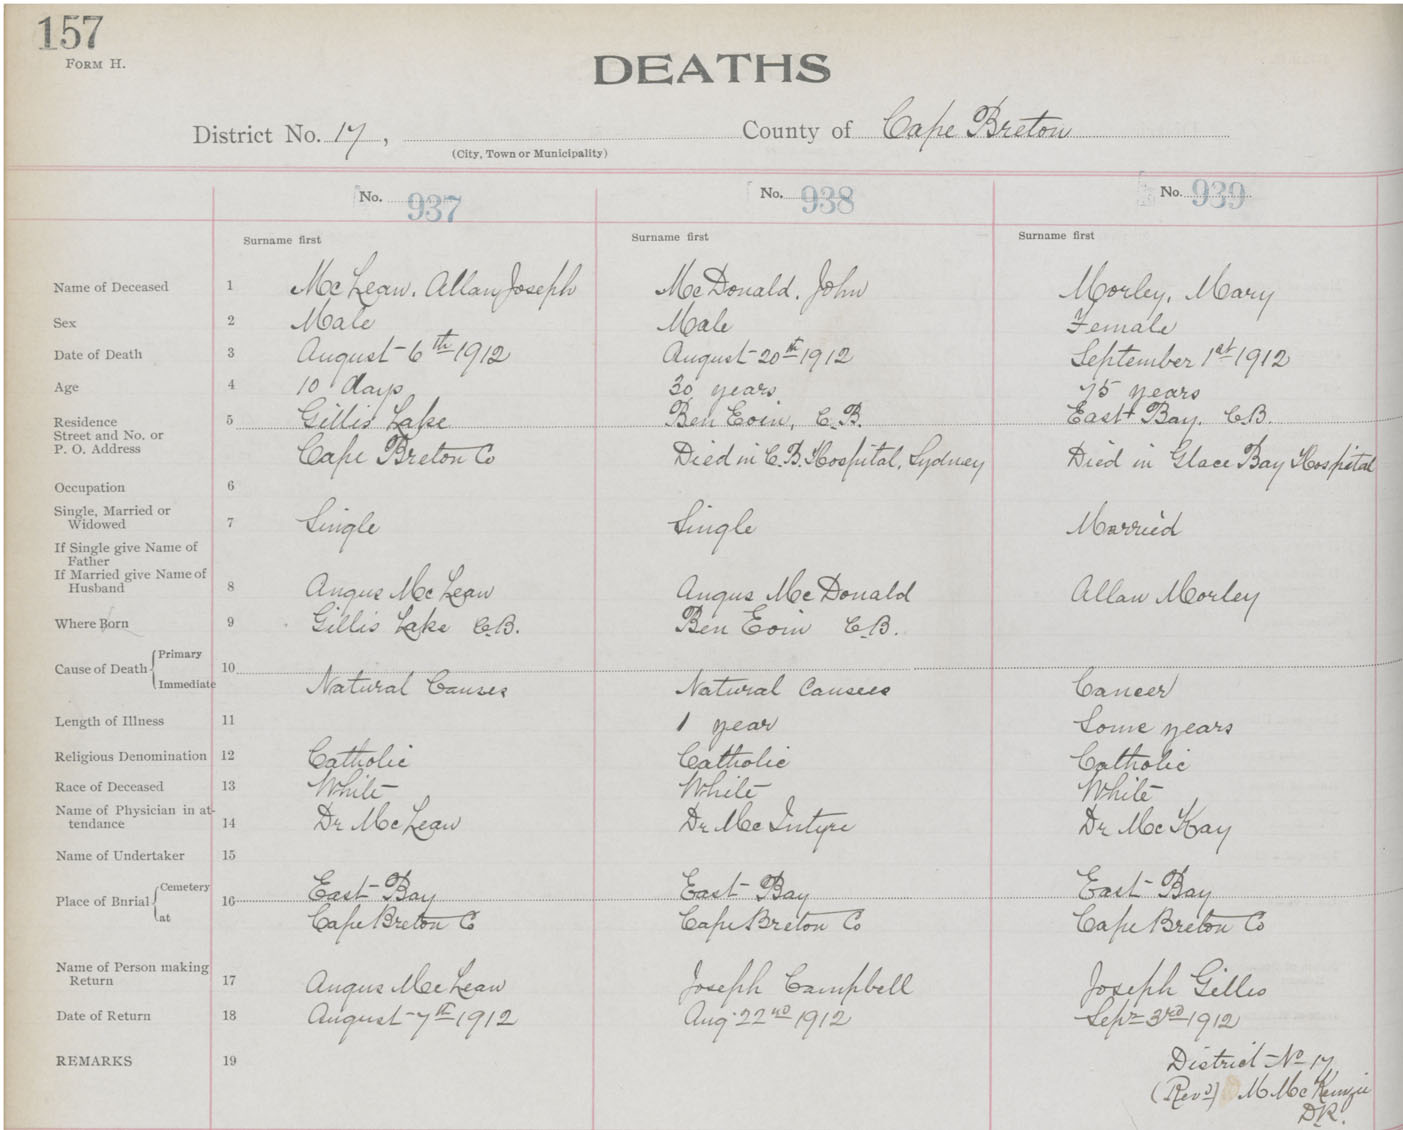 157
FORM H.
DEATHS
District No. 17,
County of Cape Breton
(City, Town or Municipality)
No. 937 No. 938 No. 939
Surname first Surname first Surname first
Name of Deceased 1 McLean, Allan Joseph McDonald, John Morley, Mary
Sex 2 Male Male Female
Date of Death 3 August 6th 1912 August 20th 1912 September 1st 1912
Age 4 10 days 30 years 75 years
Residence 5 Gillis Lake Ben Eoin, C.B. East Bay, C.B.
Street and No. or
P. O. Address Cape Breton Co Died in C.B. Hospital, Sydney Died in Glace Bay Hospital
Occupation 6
Single, Married or
Widowed 7 Single Single Married
If Single give Name of
Father
If Married give Name of
Husband 8 Angus McLean Angus McDonald Allan Morley
Where Born 9 Gillis Lake C.B. Ben Eoin C.B.
Cause of Death Primary 10
Immediate Natural Causes Natural Causes Cancer
Length of Illness 11 1 year Some years
Religious Denomination 12 Catholic Catholic Catholic
Race of Deceased 13 White White White
Name of Physician in at-
tendance 14 Dr McLean Dr McIntyre Dr McKay
Name of Undertaker 15
Place of Burial Cemetery 16 East Bay East Bay East Bay
at Cape Breton Co Cape Breton Co Cape Breton Co
Name of Person making
Return 17 Angus McLean Joseph Campbell Joseph Gillis
Date of Return 18 August 7th 1912 Aug. 22nd 1912 Sept 3rd 1912
REMARKS 19 District No 17
(Revd) M McKenzie
D.R.